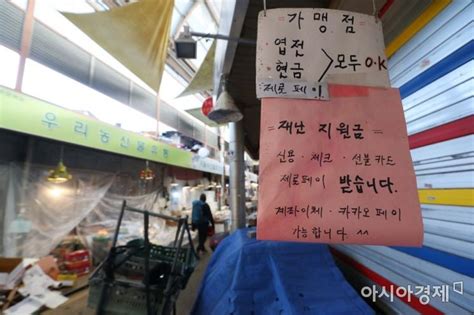 가맹점
엽전
현금 > 모두 O.K
제로페이
재난 지원금
신용 · 체크 · 선불카드
제로페이 받습니다.
계좌이체 · 카카오페이
가능합니다 ^^
우리농산물
아시아경제